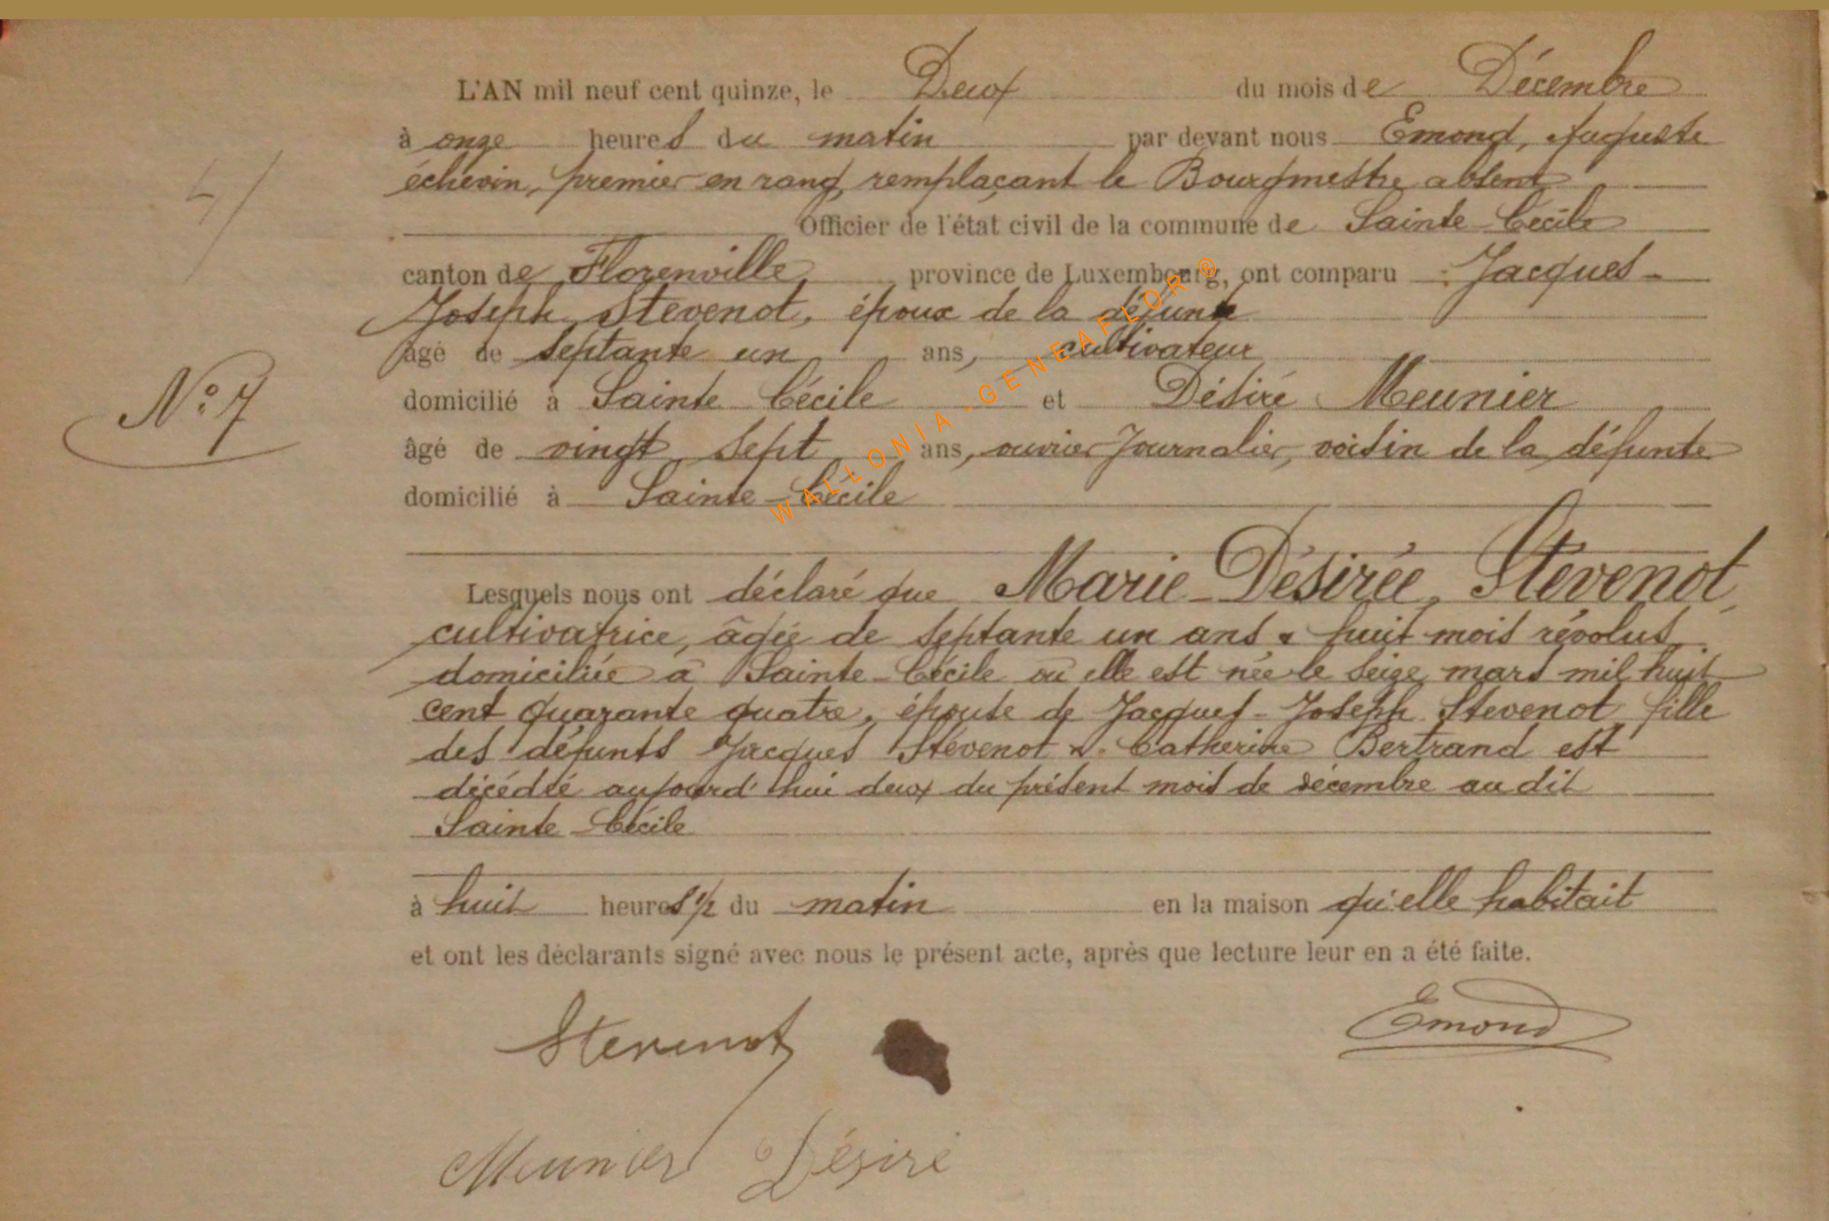 L'AN mil neuf cent quinze, le Deux du mois de Décembre
à onze heures du matin par devant nous Emond, Auguste
échevin, premier en rang, remplaçant le Bourgmestre absent
Officier de l'état civil de la commune de Sainte-Cécile
canton de Florenville province de Luxembourg, ont comparu : Jacques-
Joseph Stevenot, époux de la défunte
âgé de septante un ans, cultivateur
N° 7
domicilié à Sainte Cécile et Désiré Meunier
âgé de vingt sept ans, ouvrier journalier, voisin de la défunte
domicilié à Sainte-Cécile
WALLONIA-GENEAFLOR ®
Lesquels nous ont déclaré que Marie-Désirée Stevenot,
cultivatrice, âgée de septante un ans & huit mois révolus
domiciliée à Sainte-Cécile où elle est née le seize mars mil huit
cent quarante quatre, épouse de Jacques-Joseph Stevenot, fille
des défunts Jacques Stévenot & Catherine Bertrand est
décédée aujourd'hui deux du présent mois de décembre au dit
Sainte-Cécile
à huit heures ½ du matin en la maison qu'elle habitait
et ont les déclarants signé avec nous le présent acte, après que lecture leur en a été faite.
Stevenot
Emond
Meunier Désiré